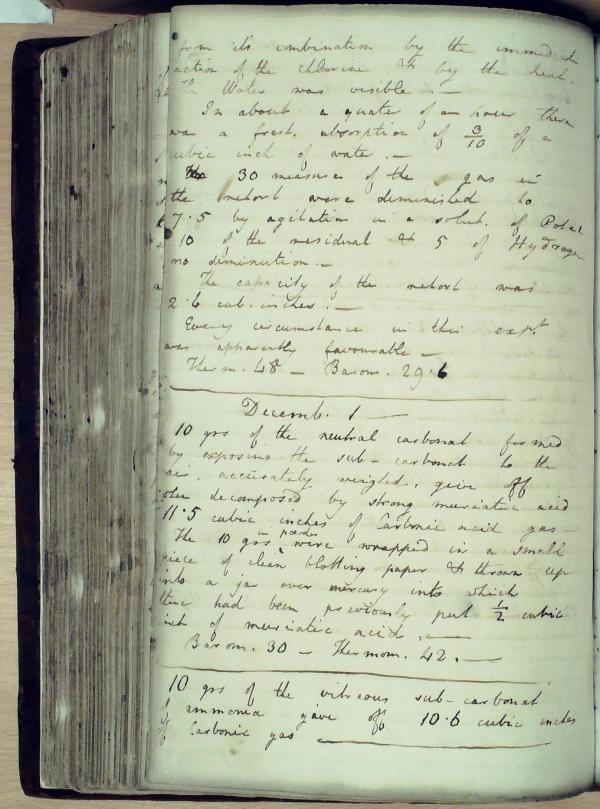 from its combination by the immediate
action of the chlorine & by the heat.
the Water was visible. —
In about a quater of an hour there
was a fresh absorption of 3/10 of a
cubic inch of water. —
The 30 measures of the gas in
the retort were diminished to
7.5 by agitation in a solut. of Potash
10 of the residual & 5 of Hydrogen
no diminution. —
The capacity of the retort was
2.6 cub. inches. —
Every circumstance in this expt.
was apparently favourable —
Therm. 48 — Barom. 29.6
Decemb. 1 —
10 grs of the neutral carbonat formed
by exposing the sub-carbonat to the
air, accurately weighed, give off
when decomposed by strong muriatic acid
11.5 cubic inches of Carbonic acid gas —
The 10 grs in powder were wrapped in a small
piece of clean blotting paper & thrown up
into a jar over mercury into which
there had been previously put 1/2 cubic
inch of muriatic acid. —
Barom. 30 — Thermom. 42. —
10 grs of the vitreous sub-carbonat
of ammonia gave off 10.6 cubic inches
of Carbonic gas —